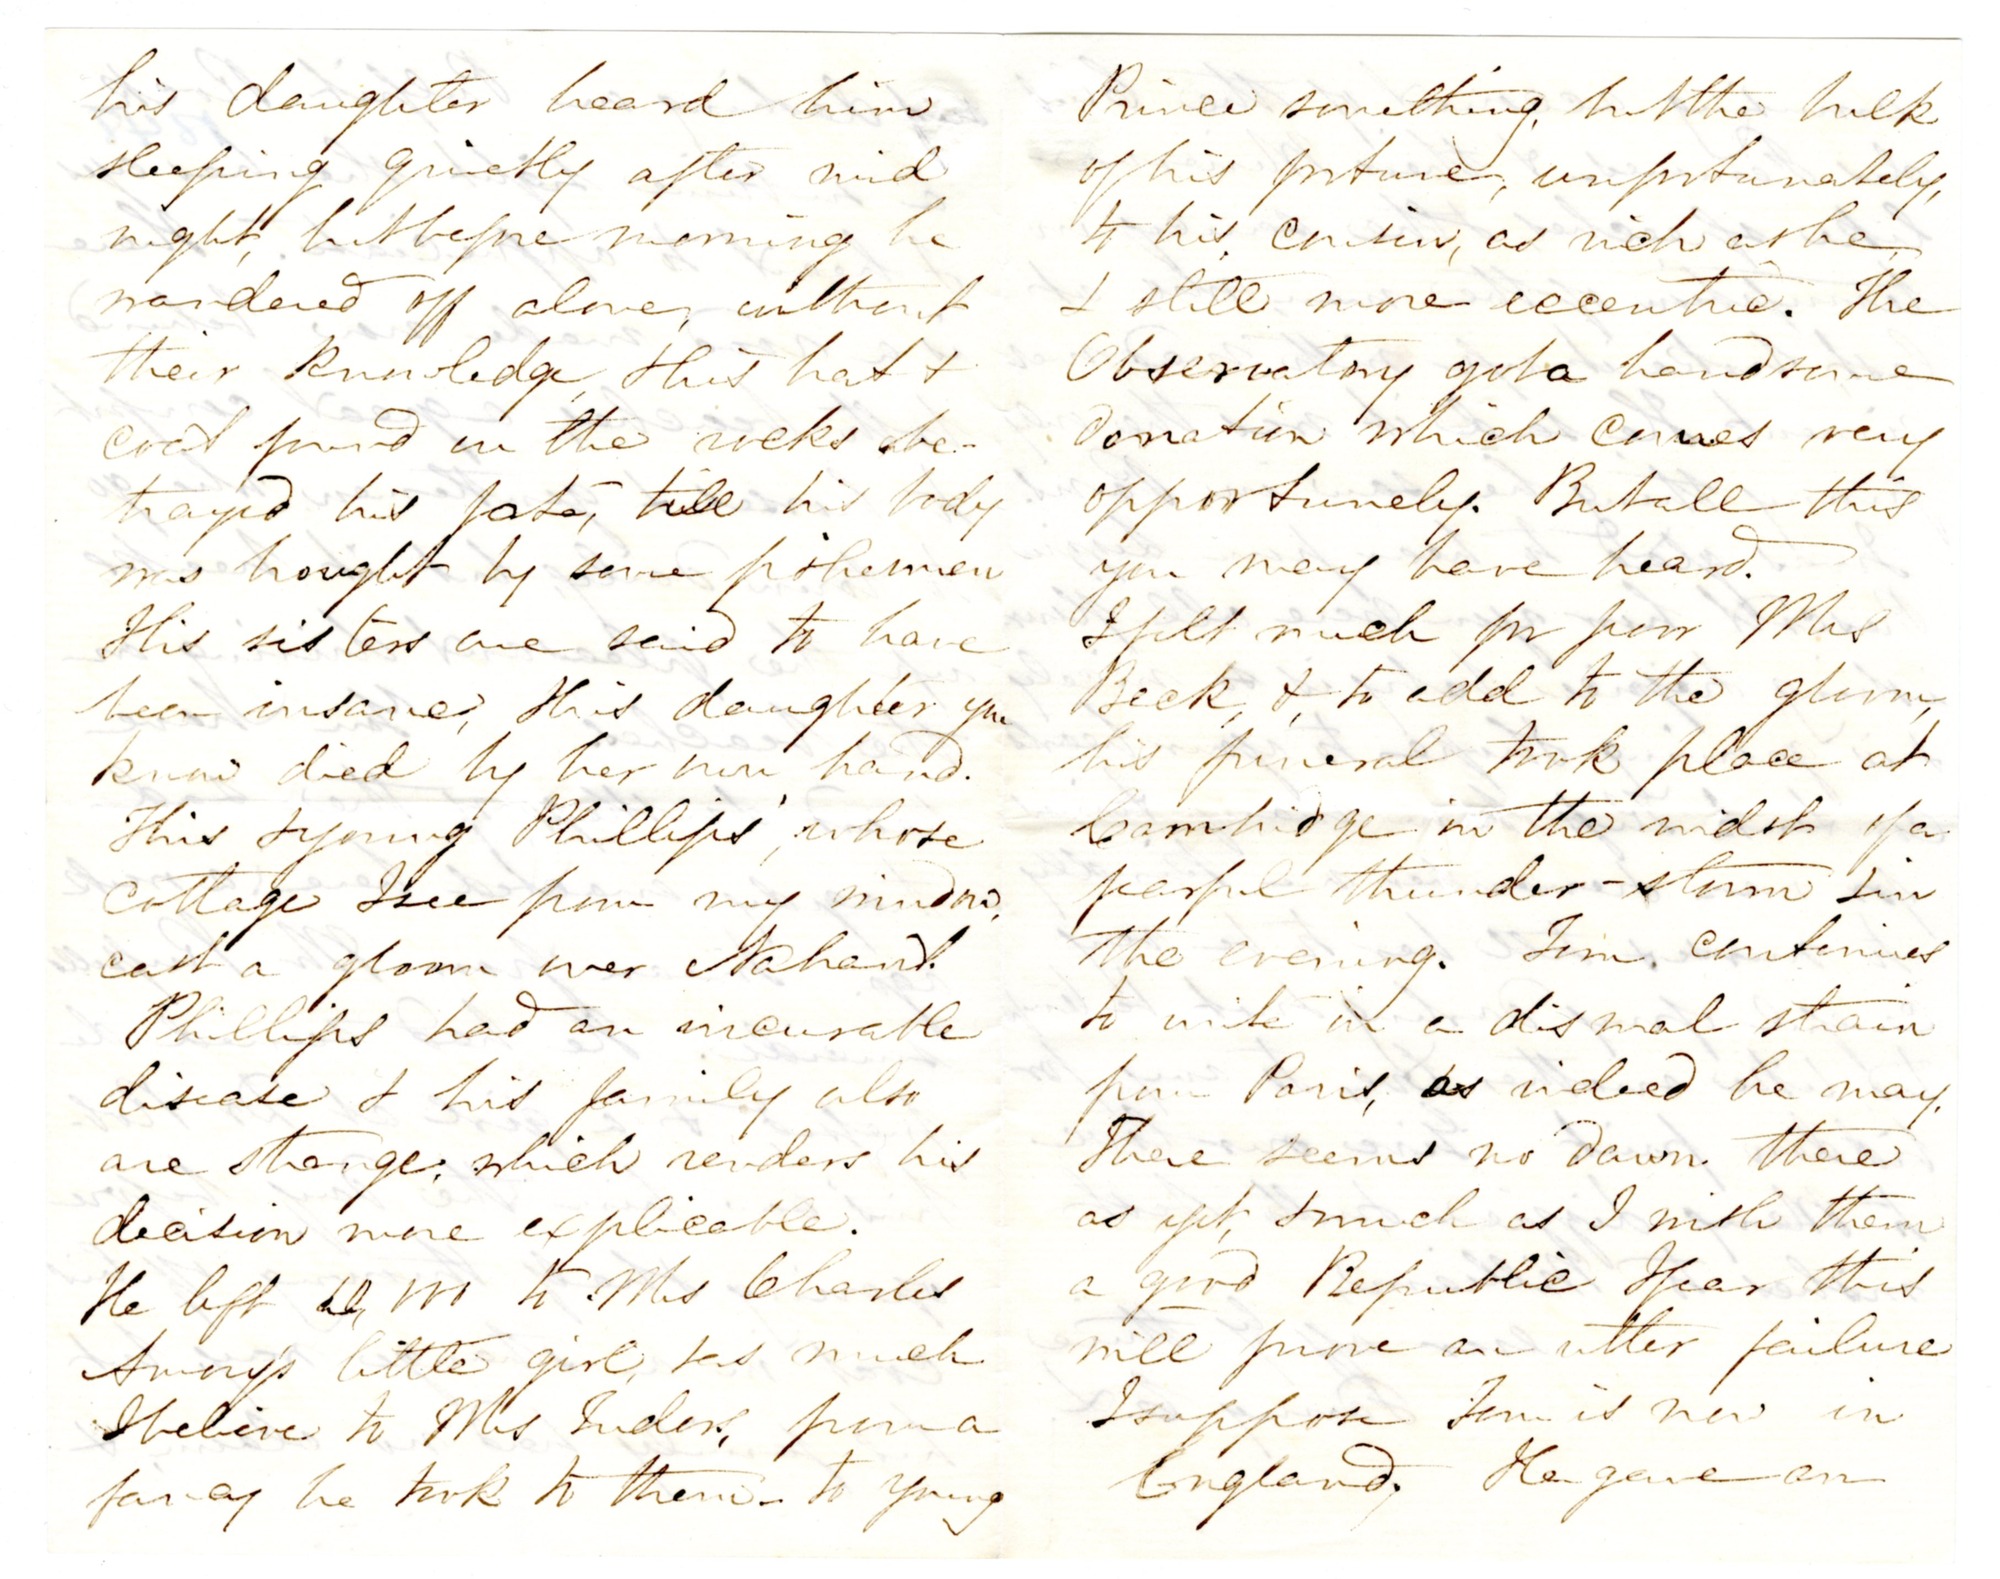 his daughter heard him
sleeping quietly after mid
night, but before morning he
wandered off alone, without
their knowledge, & his hat &
coat found on the rocks be-
trayed his fate, till his body
was brought by some fishermen
His sisters are said to have
been insane, His daughter you
know died by her own hand.
This & young Phillips', whose
cottage I see from my window,
cast a gloom over Nahant.
Phillips had an incurable
disease & his family also
are strange, which renders his
decision more explicable.
He left 000 to Mrs Charles
Amory's little girl, & as much
I believe to Mrs Tudor, from a
fancy he took to them - to young
Prince something, but the bulk
of his fortune, unfortunately,
to his cousin, as rich as he
& still more eccentric. The
Observatory got a handsome
donation which comes very
opportunely. But all this
you may have heard.
I felt much for poor Mrs
Beck, &, to add to the gloom,
his funeral took place at
Cambridge in the midst of a
fearful thunder-storm & in
the evening. Tom continues
to write in a dismal strain
from Paris, as indeed he may.
There seems no dawn there
as yet, & much as I wish them
a good Republic I fear this
will prove an utter failure
I suppose Tom is now in
England. He gave an